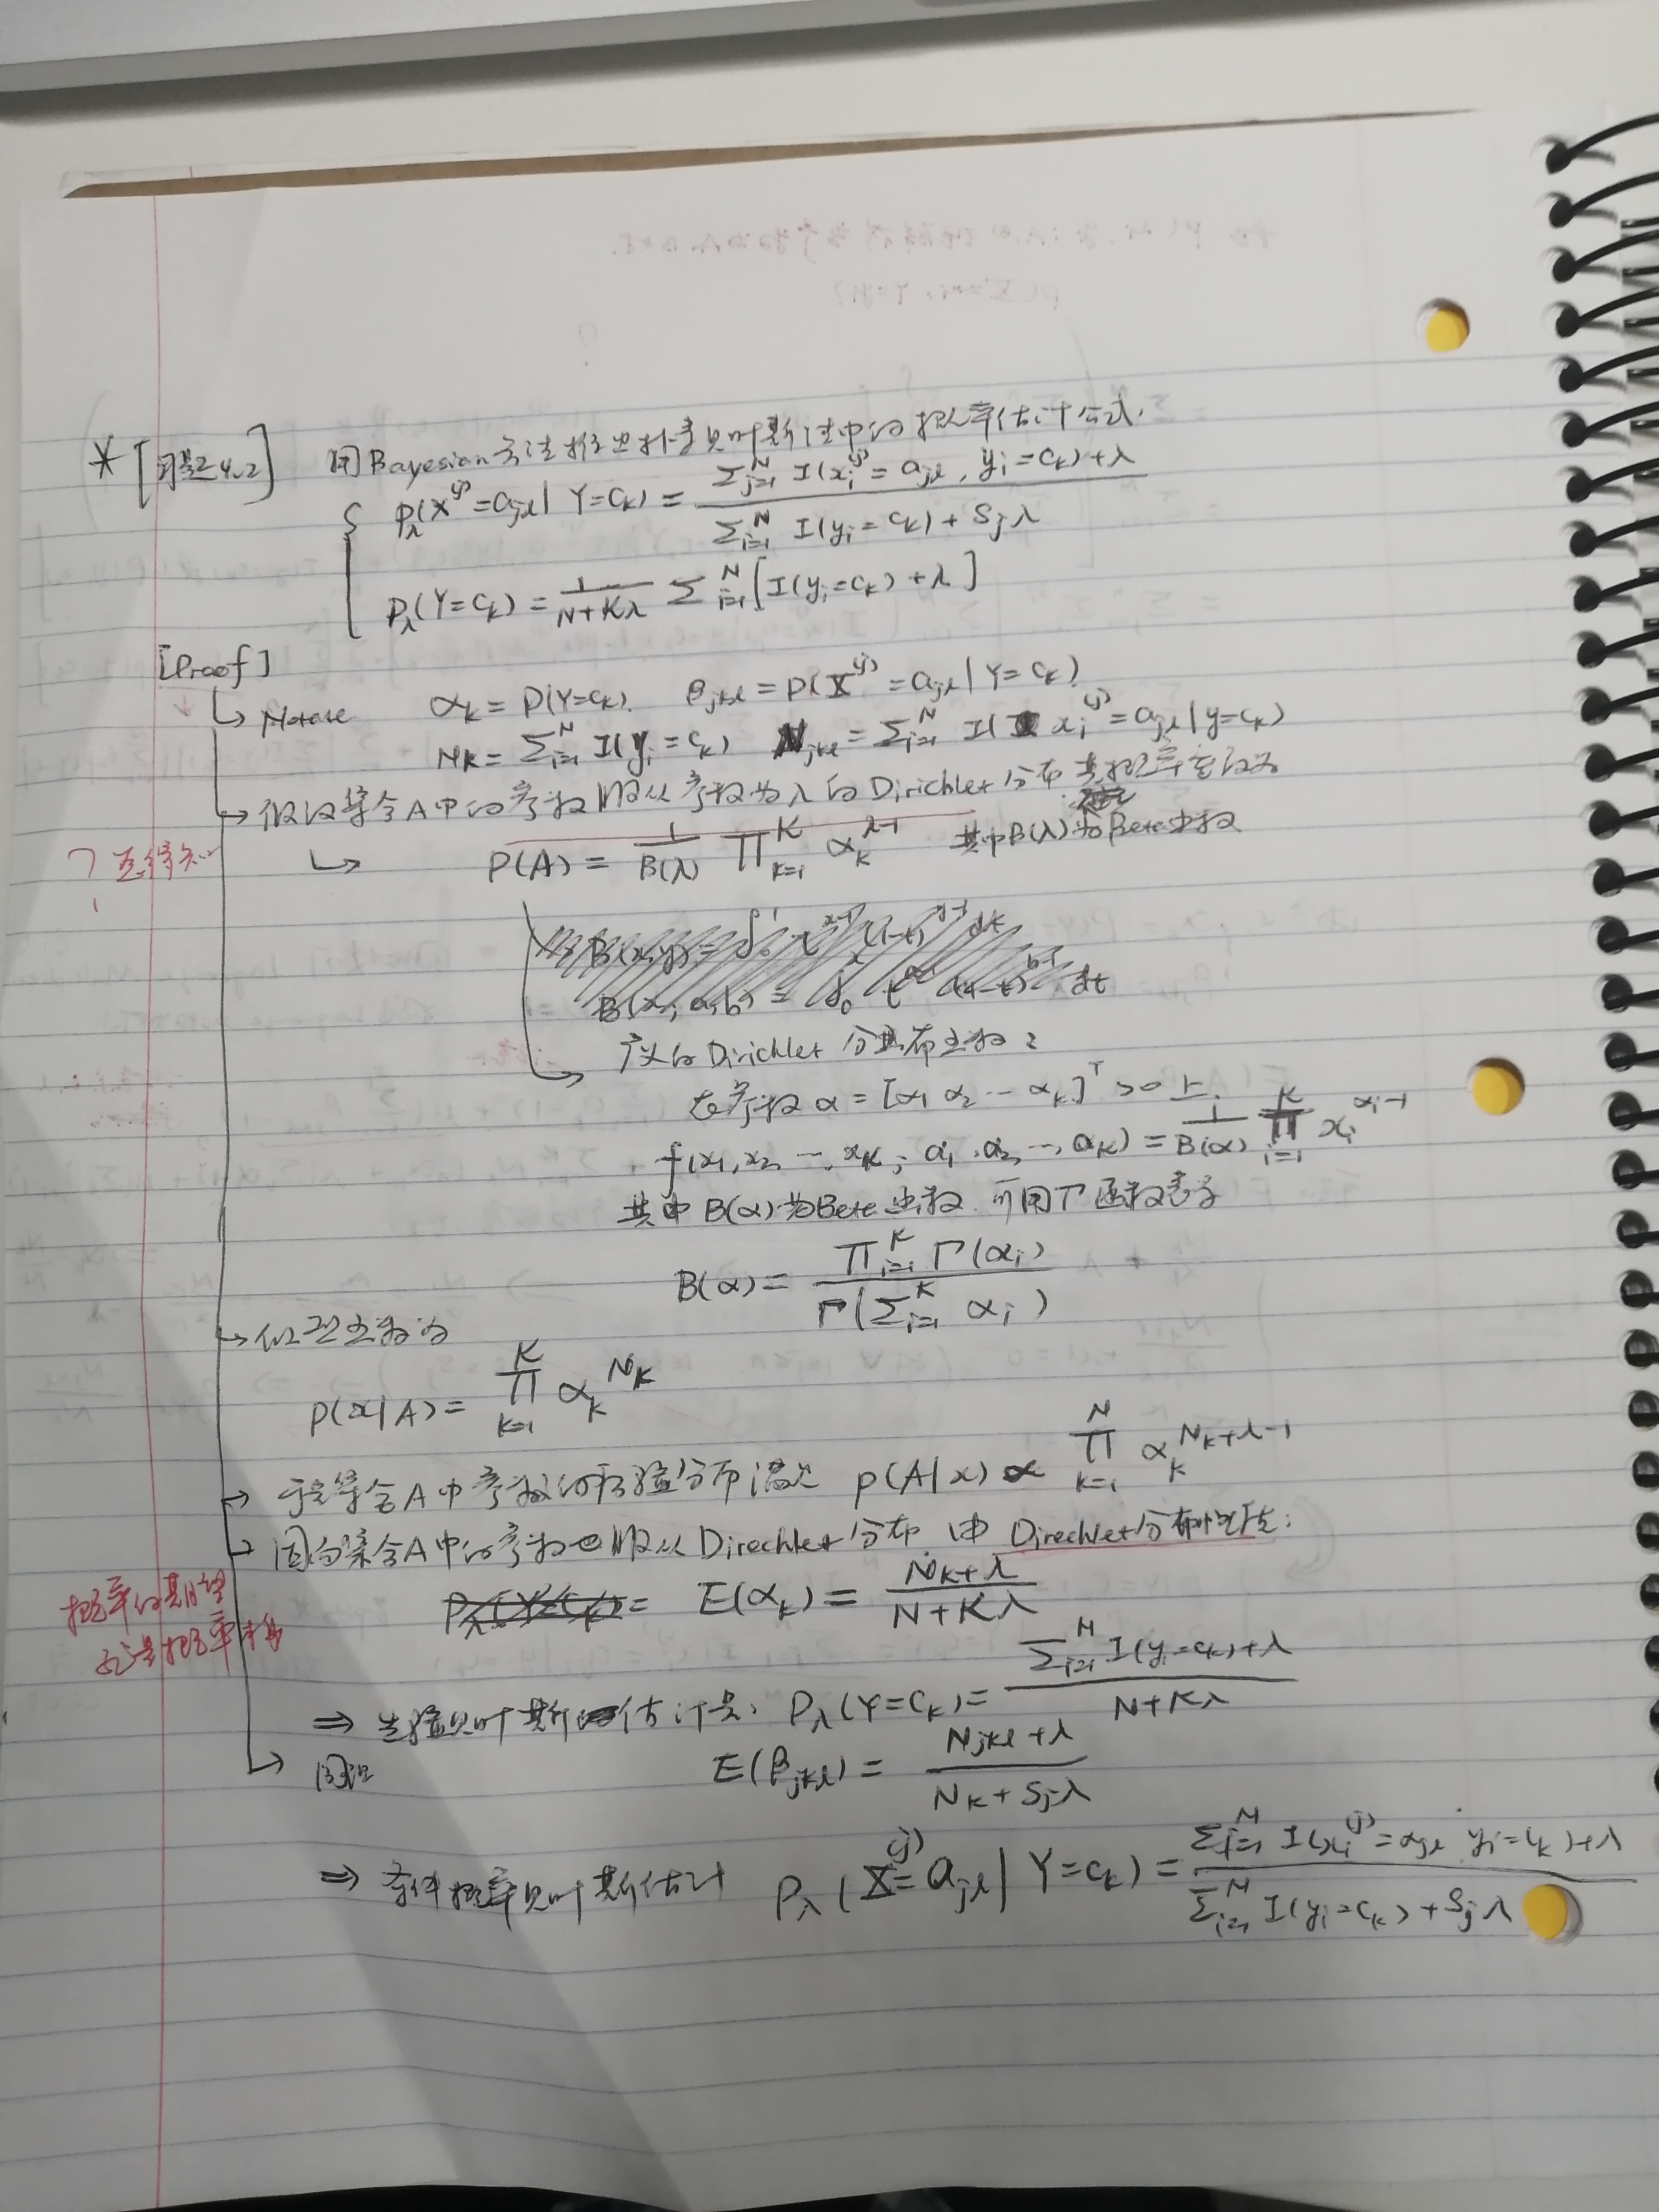 * [习题4.2] 用Bayesian方法推出朴素贝叶斯法中的概率估计公式.
P_λ(X^(j)=a_jl | Y=c_k) = \frac{Σ_{j=1}^N I(x_i^(j)=a_jl, y_i=c_k)+λ}{Σ_{i=1}^N I(y_i=c_k)+S_jλ}
P_λ(Y=c_k) = \frac{1}{N+Kλ} Σ_{i=1}^N [I(y_i=c_k)+λ]
[Proof]
↳ Notate α_k = P(Y=c_k). β_jkl = P(X^(j)=a_jl | Y=c_k)
N_k = Σ_{i=1}^N I(y_i=c_k) N_jkl = Σ_{i=1}^N I(x_i^(j)=a_jl | y=c_k)
→ 假设集合A中的参数服从参数为λ的Dirichlet分布 其概率密度为
↳ P(A) = \frac{1}{B(λ)} ∏_{k=1}^K α_k^{λ-1} 其中B(λ)为Beta函数
B(x,y) = ∫_0^1 t^{x-1} (1-t)^{y-1} dt
B(x; a,b) = ∫_0^x t^{a-1} (1-t)^{b-1} dt
广义的Dirichlet分布函数:
在参数 α = [α_1 α_2 … α_k]^T >0 上.
f(x_1, x_2, …, x_K; α_1, α_2, …, α_K) = \frac{1}{B(α)} ∏_{i=1}^K x_i^{α_i-1}
其中B(α)为Beta函数 可用Γ函数表示
B(α) = \frac{∏_{i=1}^K Γ(α_i)}{Γ(Σ_{i=1}^K α_i)}
↳ 似然函数为
P(x|A) = ∏_{k=1}^K α_k^{N_k}
→ 于是集合A中参数的后验分布满足 P(A|x) ∝ ∏_{k=1}^N α_k^{N_k+λ-1}
→ 因为集合A中的参数也服从Direchlet分布 由Direchlet分布性质:
P_λ(Y=c_k) = E(α_k) = \frac{N_k+λ}{N+Kλ}
概率的期望
⇒ 先验贝叶斯估计是: P_λ(Y=c_k) = \frac{Σ_{i=1}^N I(y_i=c_k)+λ}{N+Kλ}
↳ 同理 E(β_jkl) = \frac{N_jkl+λ}{N_k+S_jλ}
⇒ 条件概率贝叶斯估计 P_λ(X^(j)=a_jl | Y=c_k) = \frac{Σ_{i=1}^N I(x_i^(j)=a_jl y_i=c_k)+λ}{Σ_{i=1}^N I(y_i=c_k)+S_jλ}